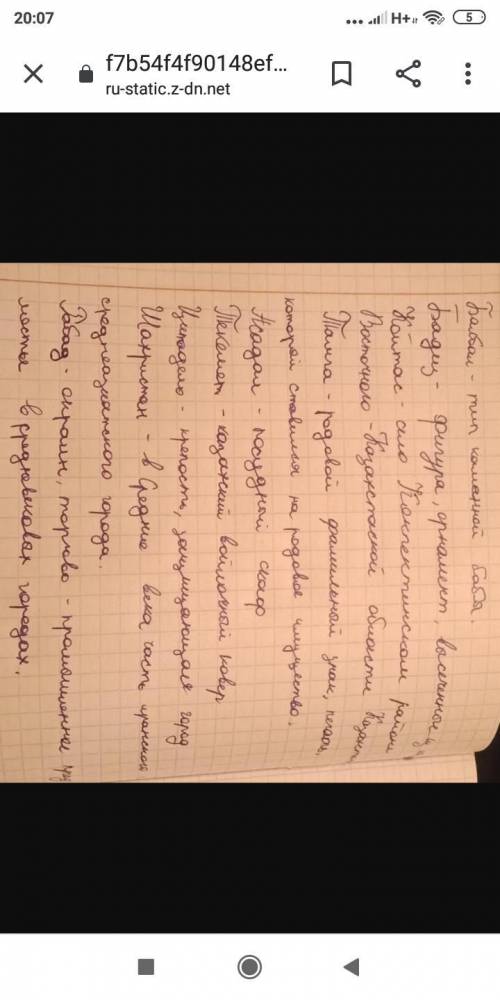 20:07
H+
5
f7b54f4f90148ef...
ru-static.z-dn.net
Бабаи - тип каменной бабы.
Бадиз - фигура, орнамент, высеченное
Койтас - село Кокпектинском районе
Восточно - Казахстаской области
Тамга - родовой фамильный знак, печать,
которой ставился на родовое имущество.
Асадал - посудный скаф
Текемет - казахский войлочный ковер
Цитадель - крепость, защищающая город
Шахристан - в Средние века часть иранского
среднеазиатского города.
Рабад - окраин, торгово - промышленное
места в средневековых городах.